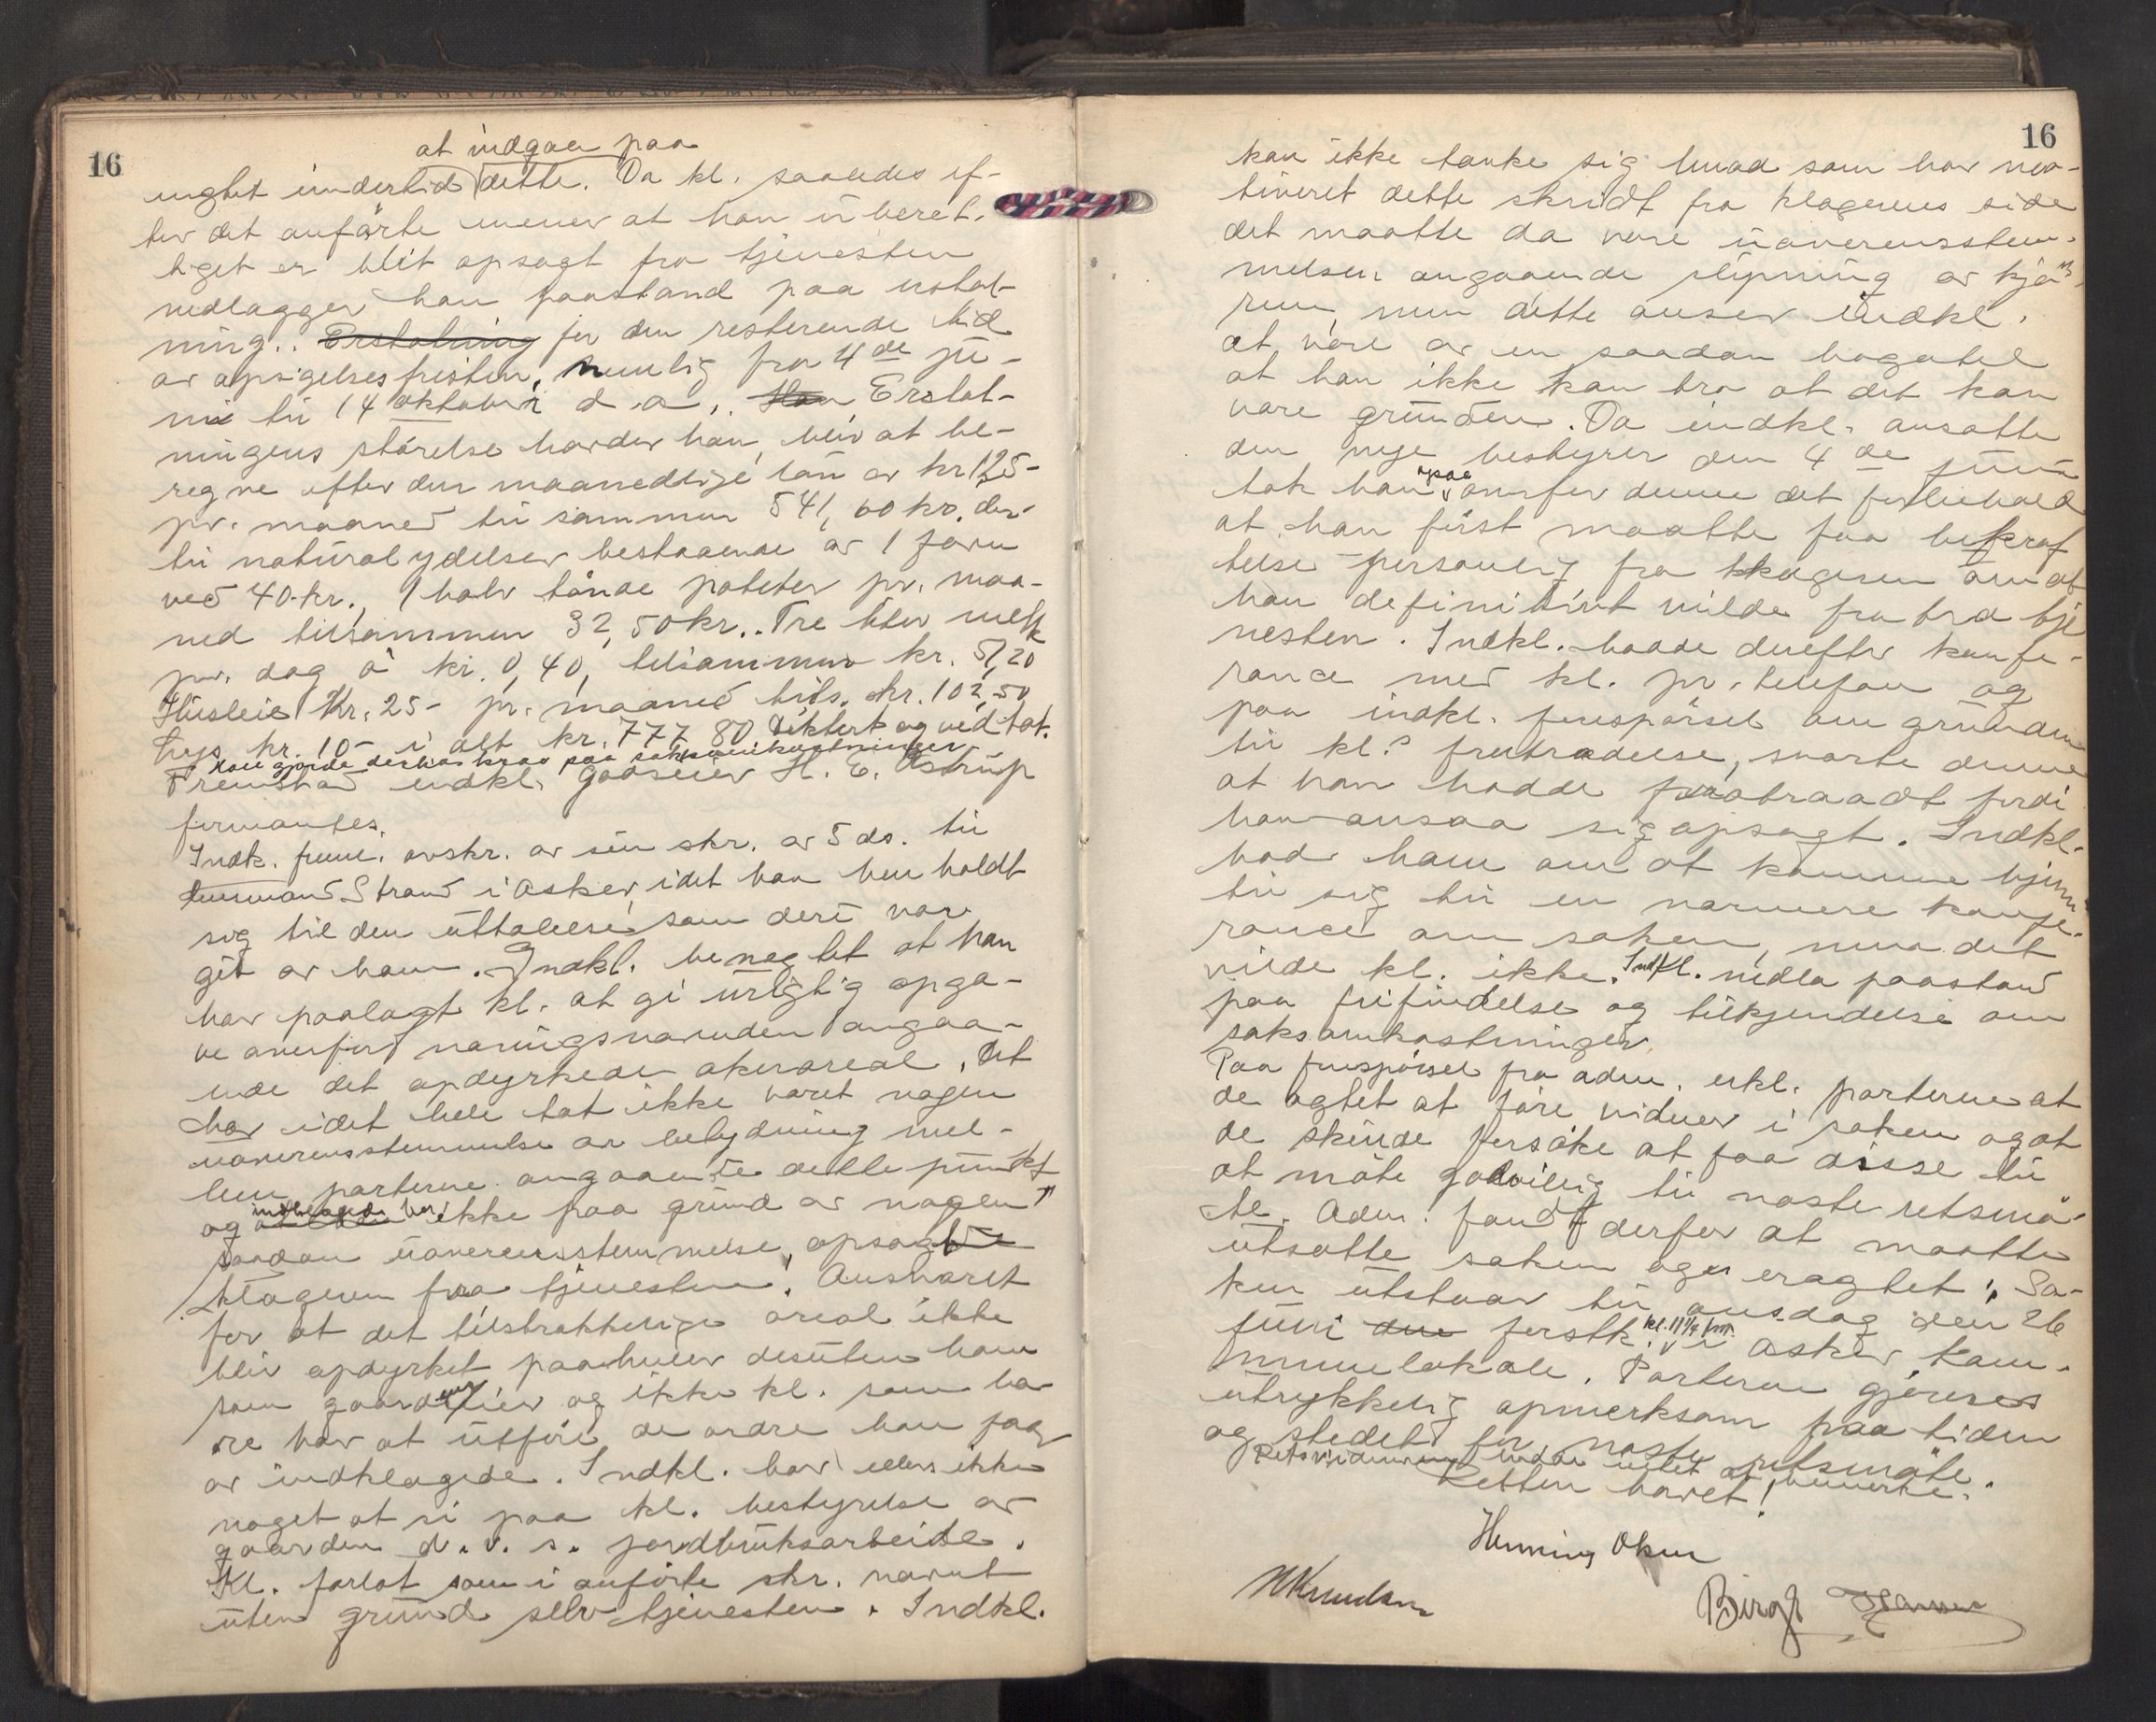 16
at indgaa paa
ligget imidlertid dette. Da kl. saaledes ef-
ter det anførte mener at han uberet-
tiget er blit opsagt fra tjenesten
nedlægger han paastand paa erstat-
ning.. Erstatning for den resterende tid
av opsigelsesfristen, nemlig fra 4de ju-
ni til 14 oktober d. a.. Han Erstat-
ningens størelse hævder han, blir at be-
regne efter den maanedlige løn av kr 125-
pr. maaned til sammen 541,60 kr. der-
til naturalydelser bestaaende av 1 favn
ved 40 kr., 1 halv tønde poteter pr. maa-
ned tilsammen 32,50 kr.. Tre liter melk
pr. dag á kr. 0,40, tilsammen kr. 51,20
Husleie Kr. 25- pr. maaned tils. kr. 102,50
Lys kr. 10- i alt kr. 777,80. Diktert og vedtat.
Han gjorde derhos krav paa saksomkostninger
Fremstod indkl. godseier H. E. Astrup
formantes.
Indk. freml. avskr. av sin skr. av 5 ds. til
lensmand Strand i Asker, idet han hen holdt
sig til den uttalelse som deri var
git av ham. Indkl. benegtet at han
har paalagt kl. at gi uriktig opga-
ve overfor næringsnævnden angaa-
ende det opdyrkede akerareal. Det
har i det hele tat ikke været nogen
uoverensstemmelse av betydning mel-
lem parterne angaaende dette punkt
og at indklagede har ikke paa grund av nogen
saadan uoverensstemmelse, opsagt
klageren fra tjenesten. Ansvaret
for at det tilstrækkelige areal ikke
blir opdyrket paahviler desuten ham
som gaardeier og ikke kl. som ba-
re har at utføre de ordre han faar
av indklagede. Indkl. har ellers ikke
noget at si paa kl. bestyrelse av
gaarden d. v. s. jordbruksarbeide.
Kl. forlot som i anførte skr. nævnt
uten grund selv tjenesten. Indkl.
16
kan ikke tænke sig hvad som har mo-
tiveret dette skridt fra klagerens side
det maatte da være uoverensstem-
melsen angaaende slipning av kjø-
rene, men dette anser indkl.
at være av en saadan bagatel
at han ikke kan tro at det kan
være grunden. Da indkl. ansatte
den nye bestyrer den 4de juni
tok han ogsaa overfor denne det forbehold
at han først maatte faa bekræf-
telse personlig fra klageren om at
han definitivt vilde fratræ tje-
nesten. Indkl. hadde derefter konfe-
rance med kl. pr. telefon og
paa indkl. forespørsel om grunden
til kl.s fratrædelse, svarte denne
at han hadde fratraadt fordi
han ansaa sig opsagt. Indkl.
bad ham om at komme hjem
til sig til en nærmere konfe-
rance om saken, men det
vilde kl. ikke. Indkl. nedla paastand
paa frifindelse og tilkjendelse om
saksomkostninger.
Paa forespørsel fra adm. erkl. parterne at
de agtet at føre vidner i saken og at
de skulde forsøke at faa disse til
at møte godvillig til næste retsmø-
te. Adm. fandt derfor at maatte
utsætte saken og er eragtet: Sa-
ken utstaar til onsdag den 26
juni due førstk. kl. 11 1/4 fm. i Asker kom-
munelokale. Parterne gjøres
utrykkelig opmerksom paa tiden
og stedet for næste retsmøte.
Retsvidnerne hadde intet at bemerke.
Retten hævet!
Henning Oksen
N Knudsen
Birger Hansen